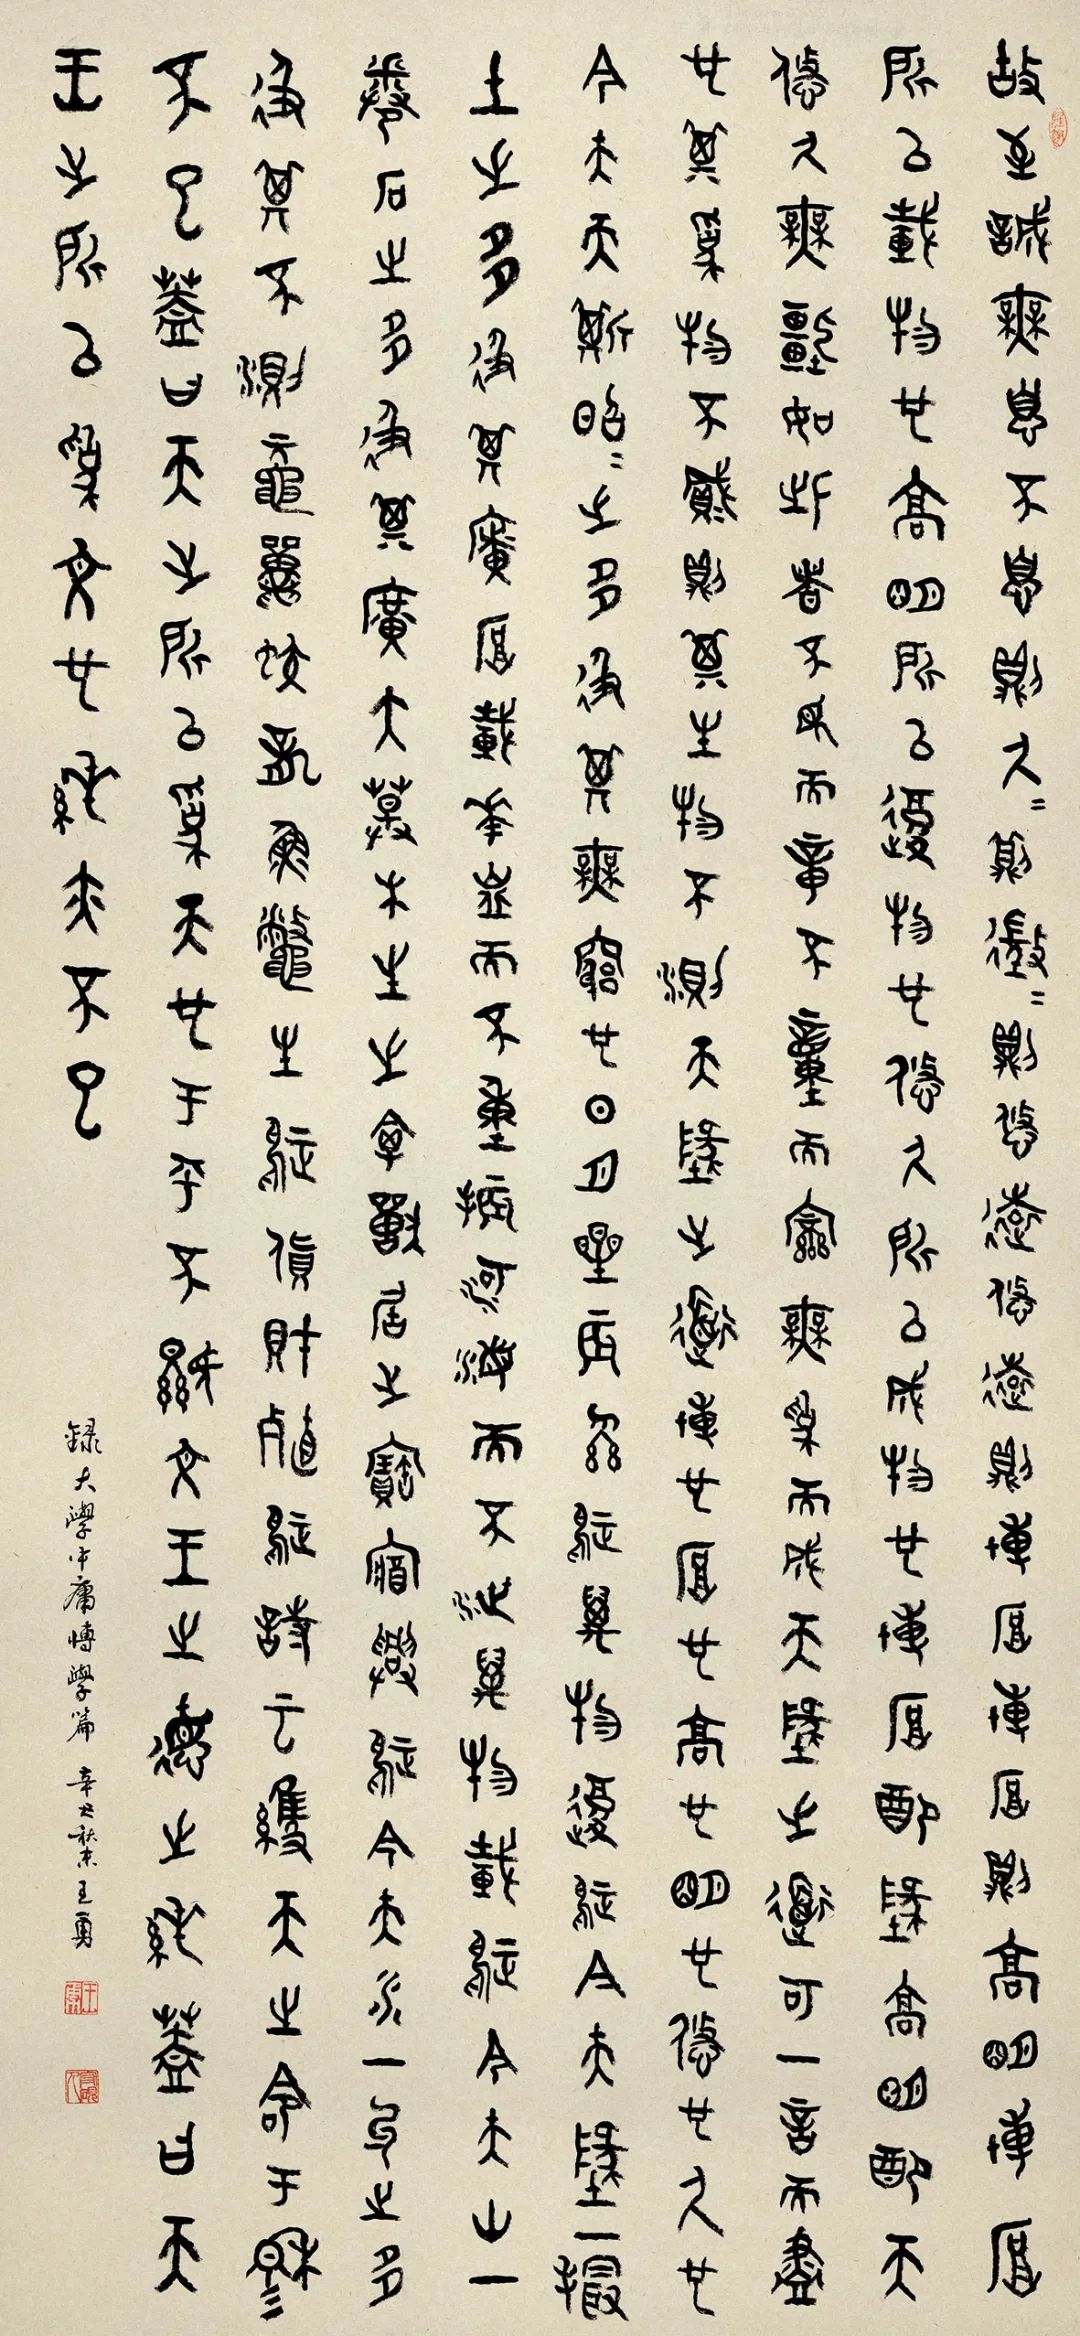 故至誠無息不息則久=則徵=則悠遠悠遠則博厚博厚則高明博厚
所以載物也高明所以覆物也悠久所以成物也博厚配地高明配天
悠久無疆如此者不見而章不動而變無為而成天地之道可一言而盡
也其為物不貳則其生物不測天地之道博也厚也高也明也悠也久也
今夫天斯昭=之多及其無窮也日月星辰系焉萬物覆焉今夫地一撮
土之多及其廣厚載華嶽而不重振河海而不洩萬物載焉今夫山一
卷石之多及其廣大草木生之禽獸居之寶藏興焉今夫水一勺之多
及其不測黿鼉蛟龍魚鱉生焉貨財殖焉詩云維天之命于穆
不已蓋曰天之所以為天也于乎不顯文王之德之純蓋曰天
王之所以為文也純亦不已
録大學中庸博學篇 辛丑秋末王勇